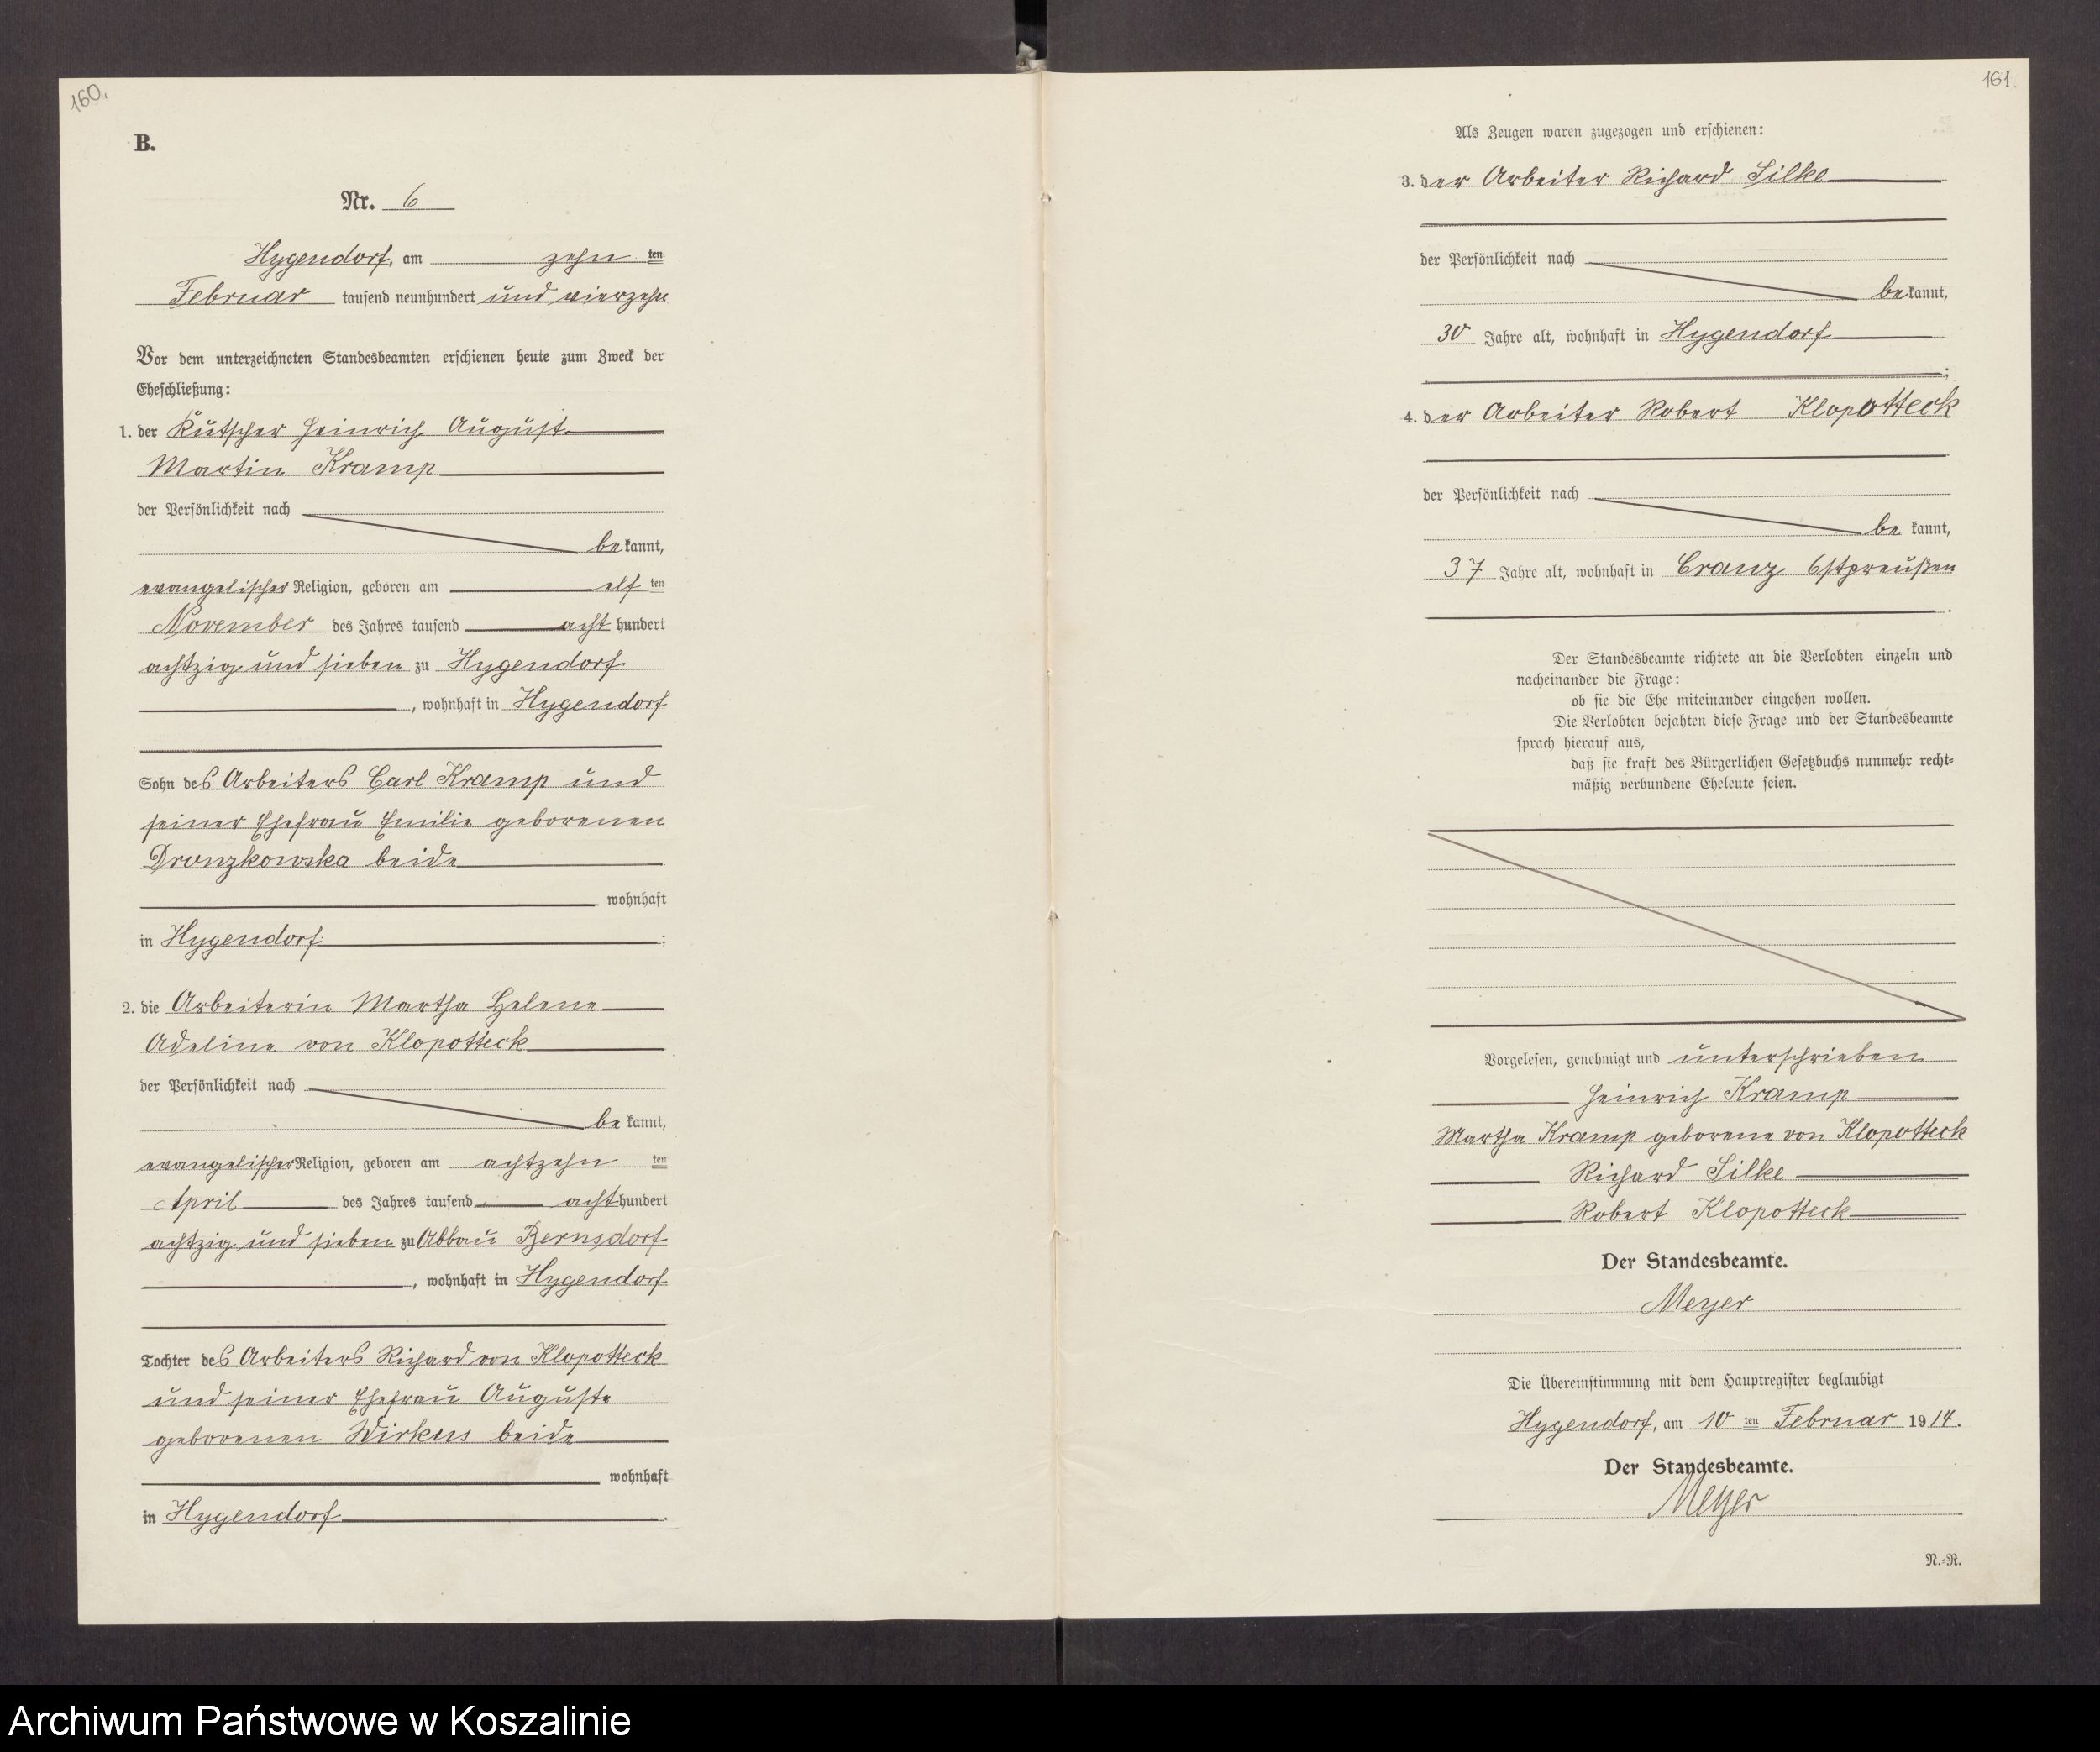 160.
B.
Nr. 6
Hygendorf, am zehn ten
Februar tausend neunhundert und vierzehn
Vor dem unterzeichneten Standesbeamten erschienen heute zum Zweck der
Eheschließung:
1. der Kutscher Heinrich August
Martin Kramp
der Persönlichkeit nach
be kannt,
evangelischer Religion, geboren am elf ten
November des Jahres tausend acht hundert
achtzig und sieben zu Hygendorf
, wohnhaft in Hygendorf
Sohn des Arbeiters Carl Kramp und
seiner Ehefrau Emilie geborenen
beide
wohnhaft
in Hygendorf ;
2. die Arbeiterin Martha Helene
Adeline von Klopotteck
der Persönlichkeit nach
be kannt,
evangelischer Religion, geboren am achtzehn ten
April des Jahres tausend acht hundert
achtzig und sieben zu Abbau Bernsdorf
, wohnhaft in Hygendorf
Tochter des Arbeiters Richard von Klopotteck
und seiner Ehefrau Auguste
geborenen Wirkus beide
wohnhaft
in Hygendorf .
161.
Als Zeugen waren zugezogen und erschienen:
3. der Arbeiter Richard Silke
der Persönlichkeit nach
be kannt,
30 Jahre alt, wohnhaft in Hygendorf
;
4. der Arbeiter Robert Klopotteck
der Persönlichkeit nach
be kannt,
37 Jahre alt, wohnhaft in Cranz Ostpreußen
.
Der Standesbeamte richtete an die Verlobten einzeln und
nacheinander die Frage:
ob sie die Ehe miteinander eingehen wollen.
Die Verlobten bejahten diese Frage und der Standesbeamte
sprach hierauf aus,
daß sie kraft des Bürgerlichen Gesetzbuchs nunmehr recht-
mäßig verbundene Eheleute seien.
Vorgelesen, genehmigt und unterschrieben
Heinrich Kramp
Martha Kramp geborene von Klopotteck
Richard Silke
Robert Klopotteck
Der Standesbeamte.
Meyer
Die Übereinstimmung mit dem Hauptregister beglaubigt
Hygendorf, am 10 ten Februar 1914.
Der Standesbeamte.
Meyer
N.-R.
Archiwum Państwowe w Koszalinie